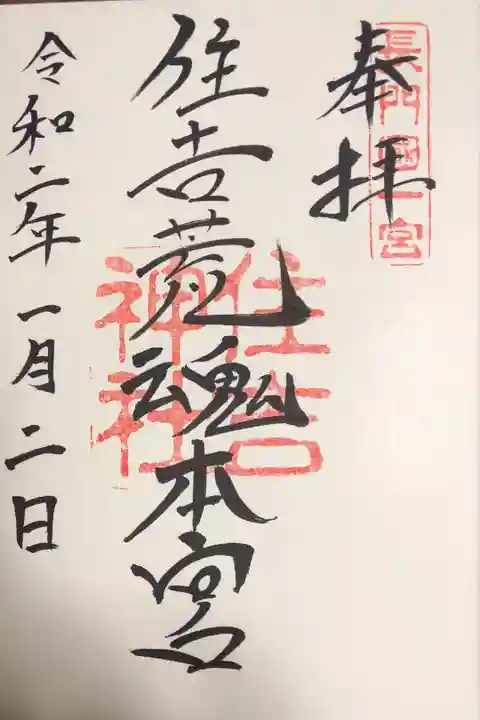 長門國一宮
奉拝
住吉荒魂本宮
住吉
神社
令和二年一月二日